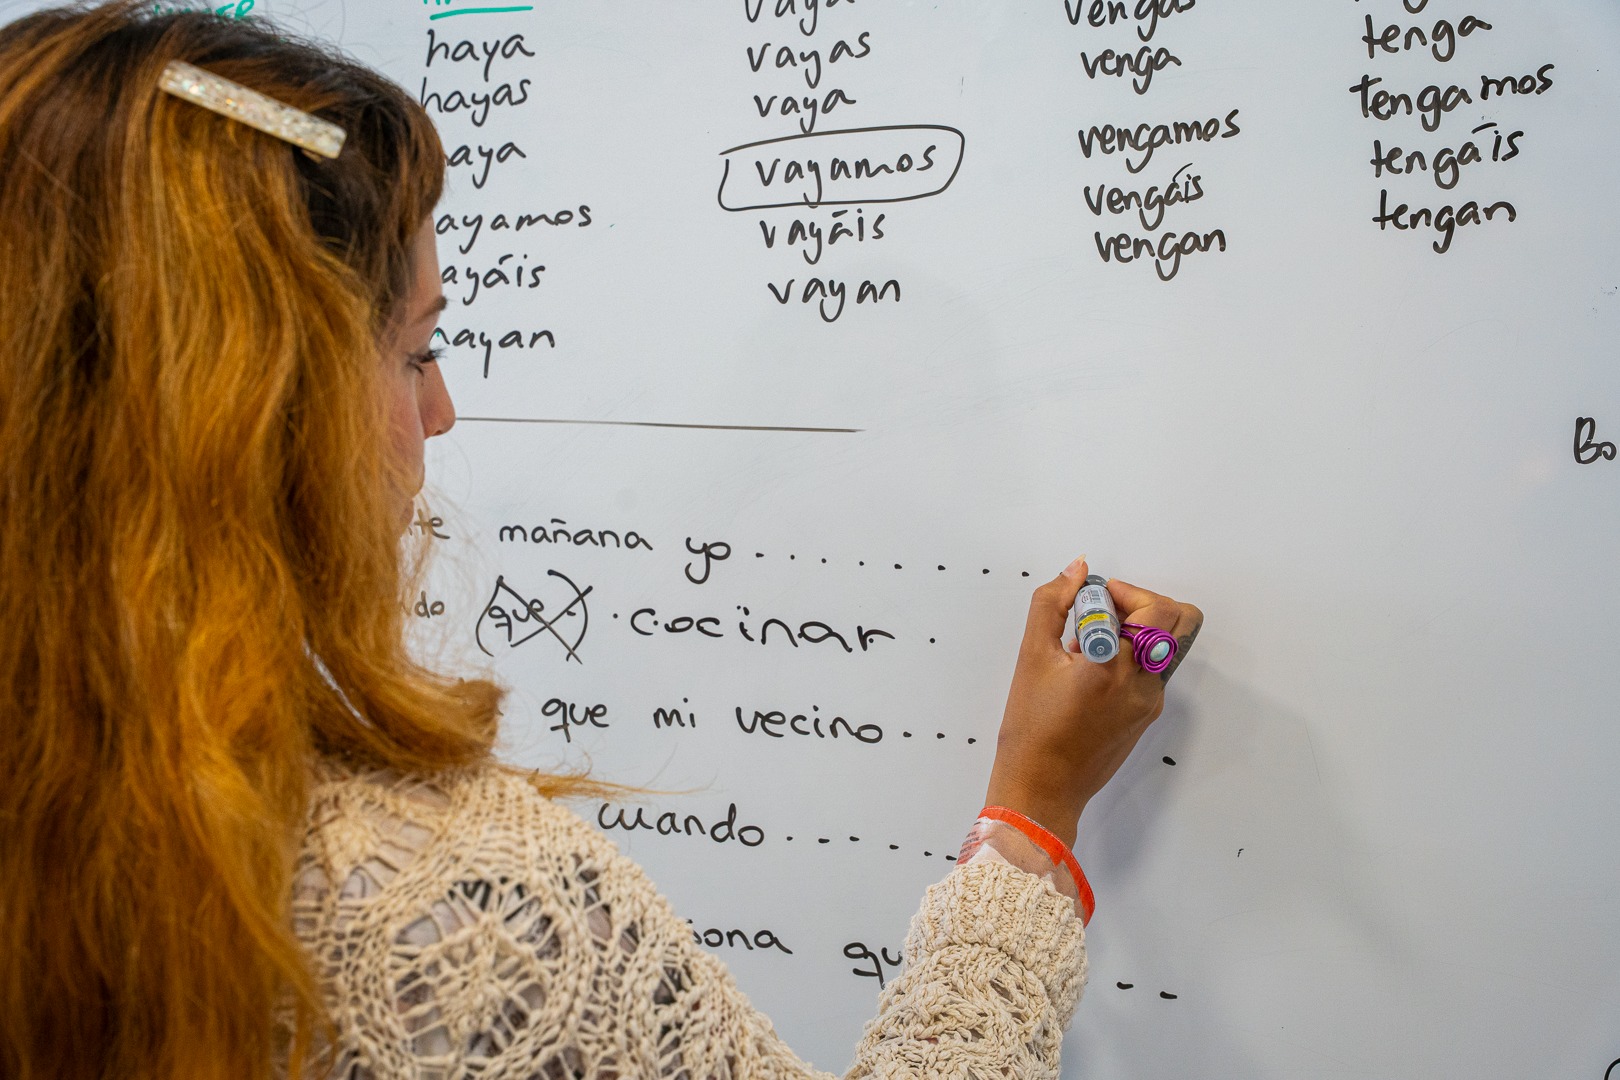 haya
hayas
aya
ayamos
ayáis
hayan
vaya
vayas
vaya
vayamos
vayáis
vayan
vengas
venga
vengamos
vengáis
vengan
tenga
tengamos
tengáis
tengan
Bo
te mañana yo . . . . . . . . .
do (que) . cocinar .
que mi vecino . . . .
cuando . . . . . .
sona qu - -